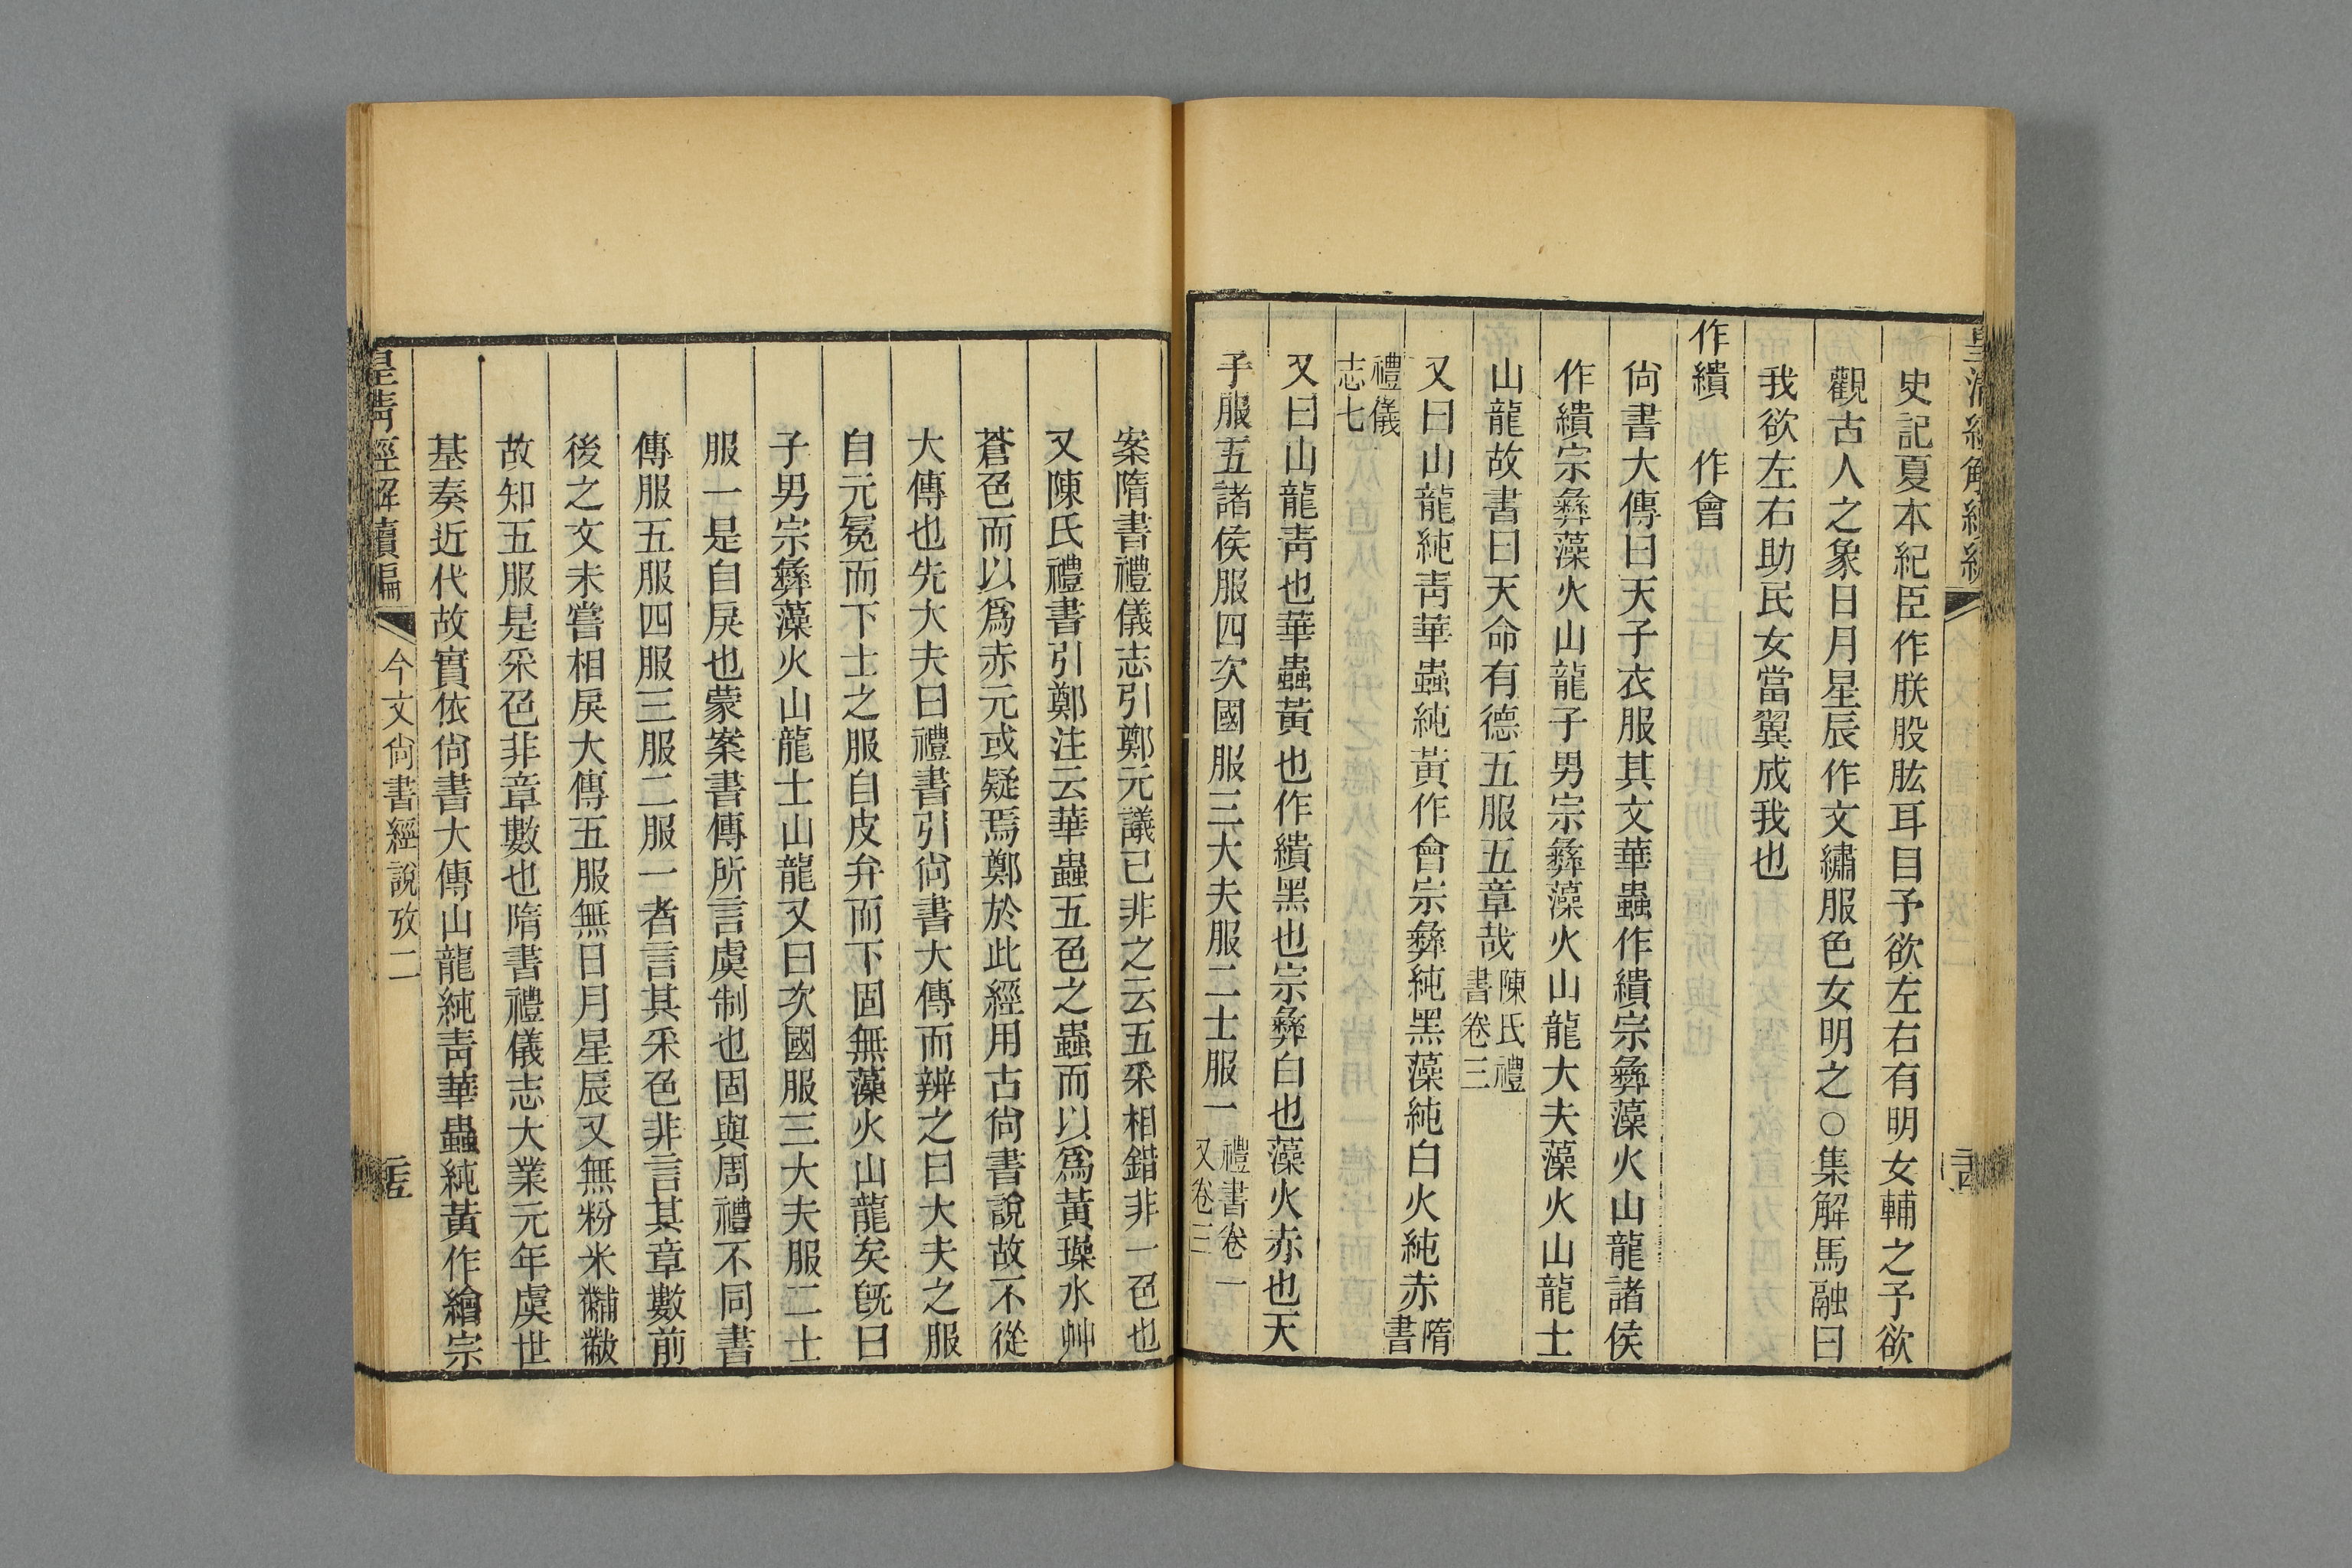 史記夏本紀臣作朕股肱耳目予欲左右有明女輔之予欲
觀古人之象日月星辰作文繡服色女明之○集解馬融曰
我欲左右助民女當翼成我也
作繢　作會
尙書大傳曰天子衣服其文華蟲作繢宗彝藻火山龍諸侯
作繢宗彝藻火山龍子男宗彝藻火山龍大夫藻火山龍士
山龍故書曰天命有德五服五章哉陳氏禮書卷三
又曰山龍純靑華蟲純黃作會宗彝純黑藻純白火純赤隋書
禮儀志七
又曰山龍靑也華蟲黃也作繢黑也宗彝白也藻火赤也天
子服五諸侯服四次國服三大夫服二士服一禮書卷一又卷三
案隋書禮儀志引鄭元議已非之云五采相錯非一色也
又陳氏禮書引鄭注云華蟲五色之蟲而以爲黃璪水艸
蒼色而以爲赤元或疑焉鄭於此經用古尙書說故不從
大傳也先大夫曰禮書引尙書大傳而辨之曰大夫之服
自元冕而下士之服自皮弁而下固無藻火山龍矣旣曰
子男宗彝藻火山龍士山龍又曰次國服三大夫服二士
服一是自戾也蒙案書傳所言虞制也固與周禮不同書
傳服五服四服三服二服一者言其采色非言其章數前
後之文未嘗相戾大傳五服無日月星辰又無粉米黼黻
故知五服是采色非章數也隋書禮儀志大業元年虞世
基奏近代故實依尙書大傳山龍純靑華蟲純黃作繪宗
皇淸經解續編
今文尙書經說攷二